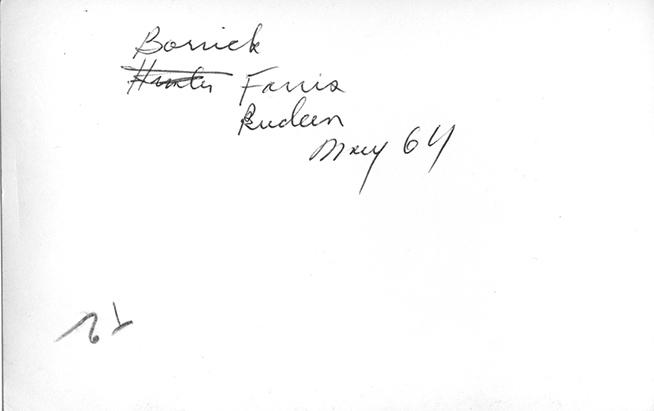 Borrick
Hunter Farris
Rudeen
May 64